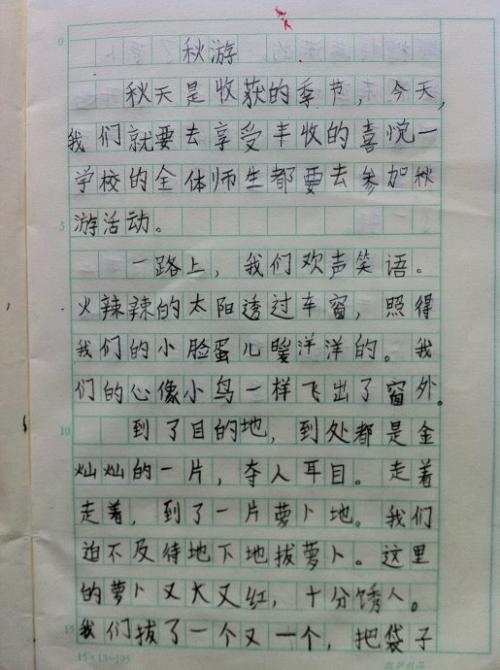 秋游
秋天是收获的季节，今天，
我们就要去享受丰收的喜悦一
学校的全体师生都要去参加秋
游活动。
一路上，我们欢声笑语。
火辣辣的太阳透过车窗，照得
我们的小脸蛋儿暖洋洋的。我
们的心像小鸟一样飞出了窗外。
到了目的地，到处都是金
灿灿的一片，夺人耳目。走着
走着，到了一片萝卜地。我们
迫不及待地下地拔萝卜。这里
的萝卜又大又红，十分诱人。
我们拔了一个又一个，把袋子
15×13=195